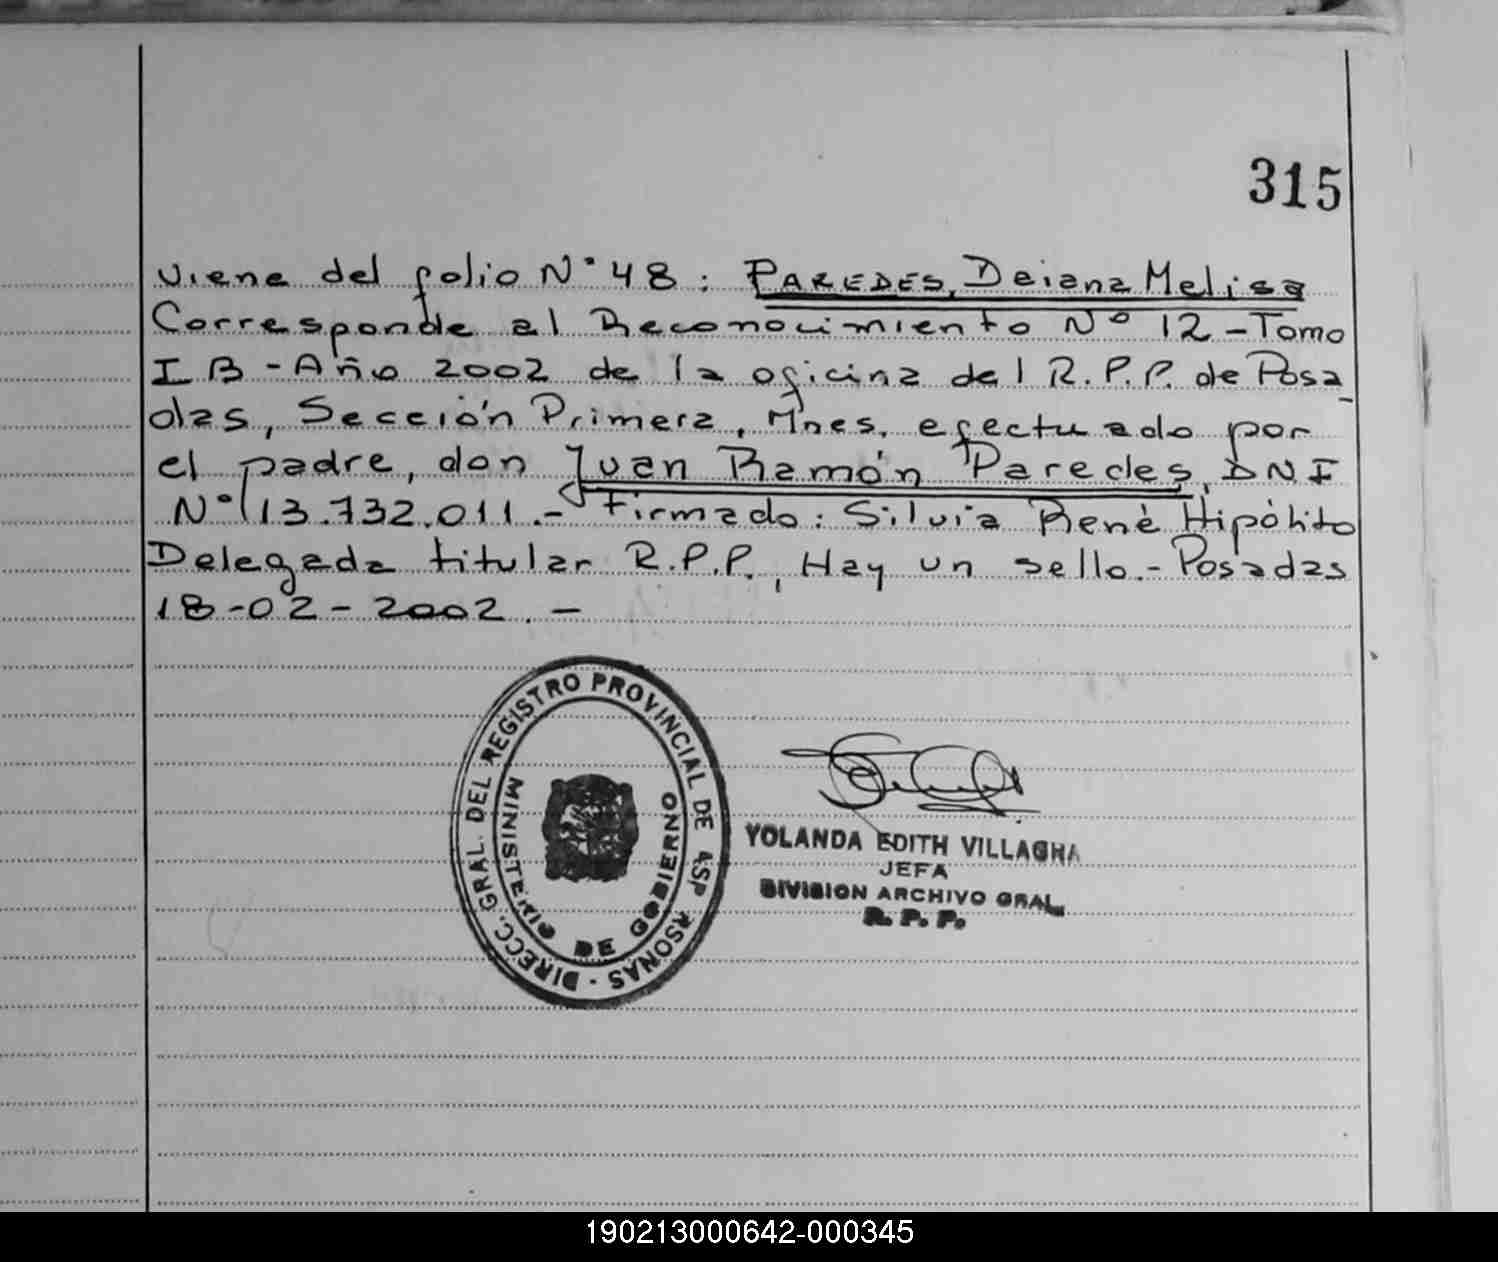 315
Viene del folio N° 48: PAREDES, Deiana Melisa
Corresponde al Reconocimiento N° 12 - Tomo
I B - Año 2002 de la oficina del R.P.P. de Posa
das, Sección Primera, Mnes, efectuado por
el padre, don Juan Ramón Paredes, DNI
N° 13.732.011.- Firmado: Silvia René Hipólito
Delegada titular R.P.P., Hay un sello.- Posadas
18-02-2002.-
DIRECC. GRAL. DEL REGISTRO PROVINCIAL DE PERSONAS
MINISTERIO DE GOBIERNO
YOLANDA EDITH VILLAGRA
JEFA
DIVISION ARCHIVO GRAL
R. P. P.
190213000642-000345